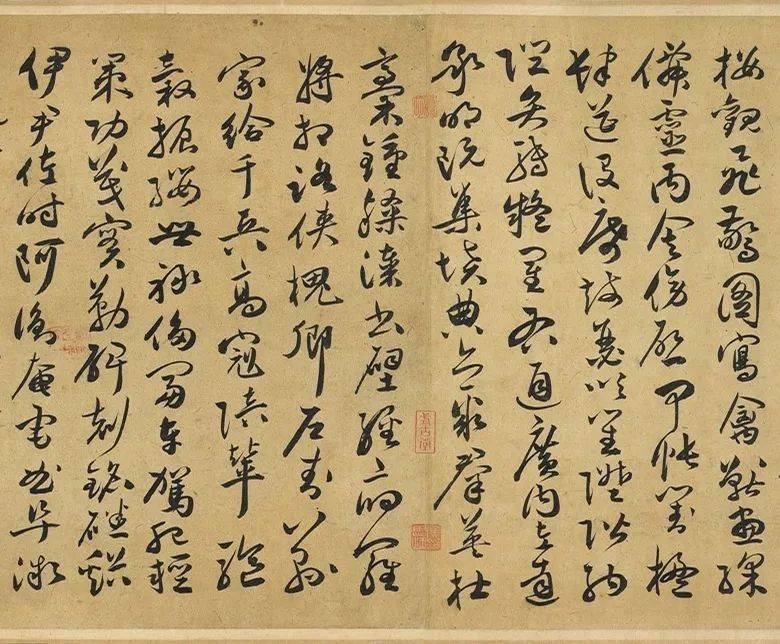 樓觀飛驚圖寫禽獸畫綵
僊靈丙舍傍啟甲帳對楹
肆筵設席鼓瑟吹笙陞階納
陛弁轉疑星右通廣內左達
承明既集墳典亦聚群英杜
稾鍾隸漆書壁經府羅
將相路俠槐卿戶封八縣
家給千兵高冠陪輦驅
轂振纓世祿侈富車駕肥輕
策功茂實勒碑刻銘磻溪
伊尹佐時阿衡奄宅曲阜微